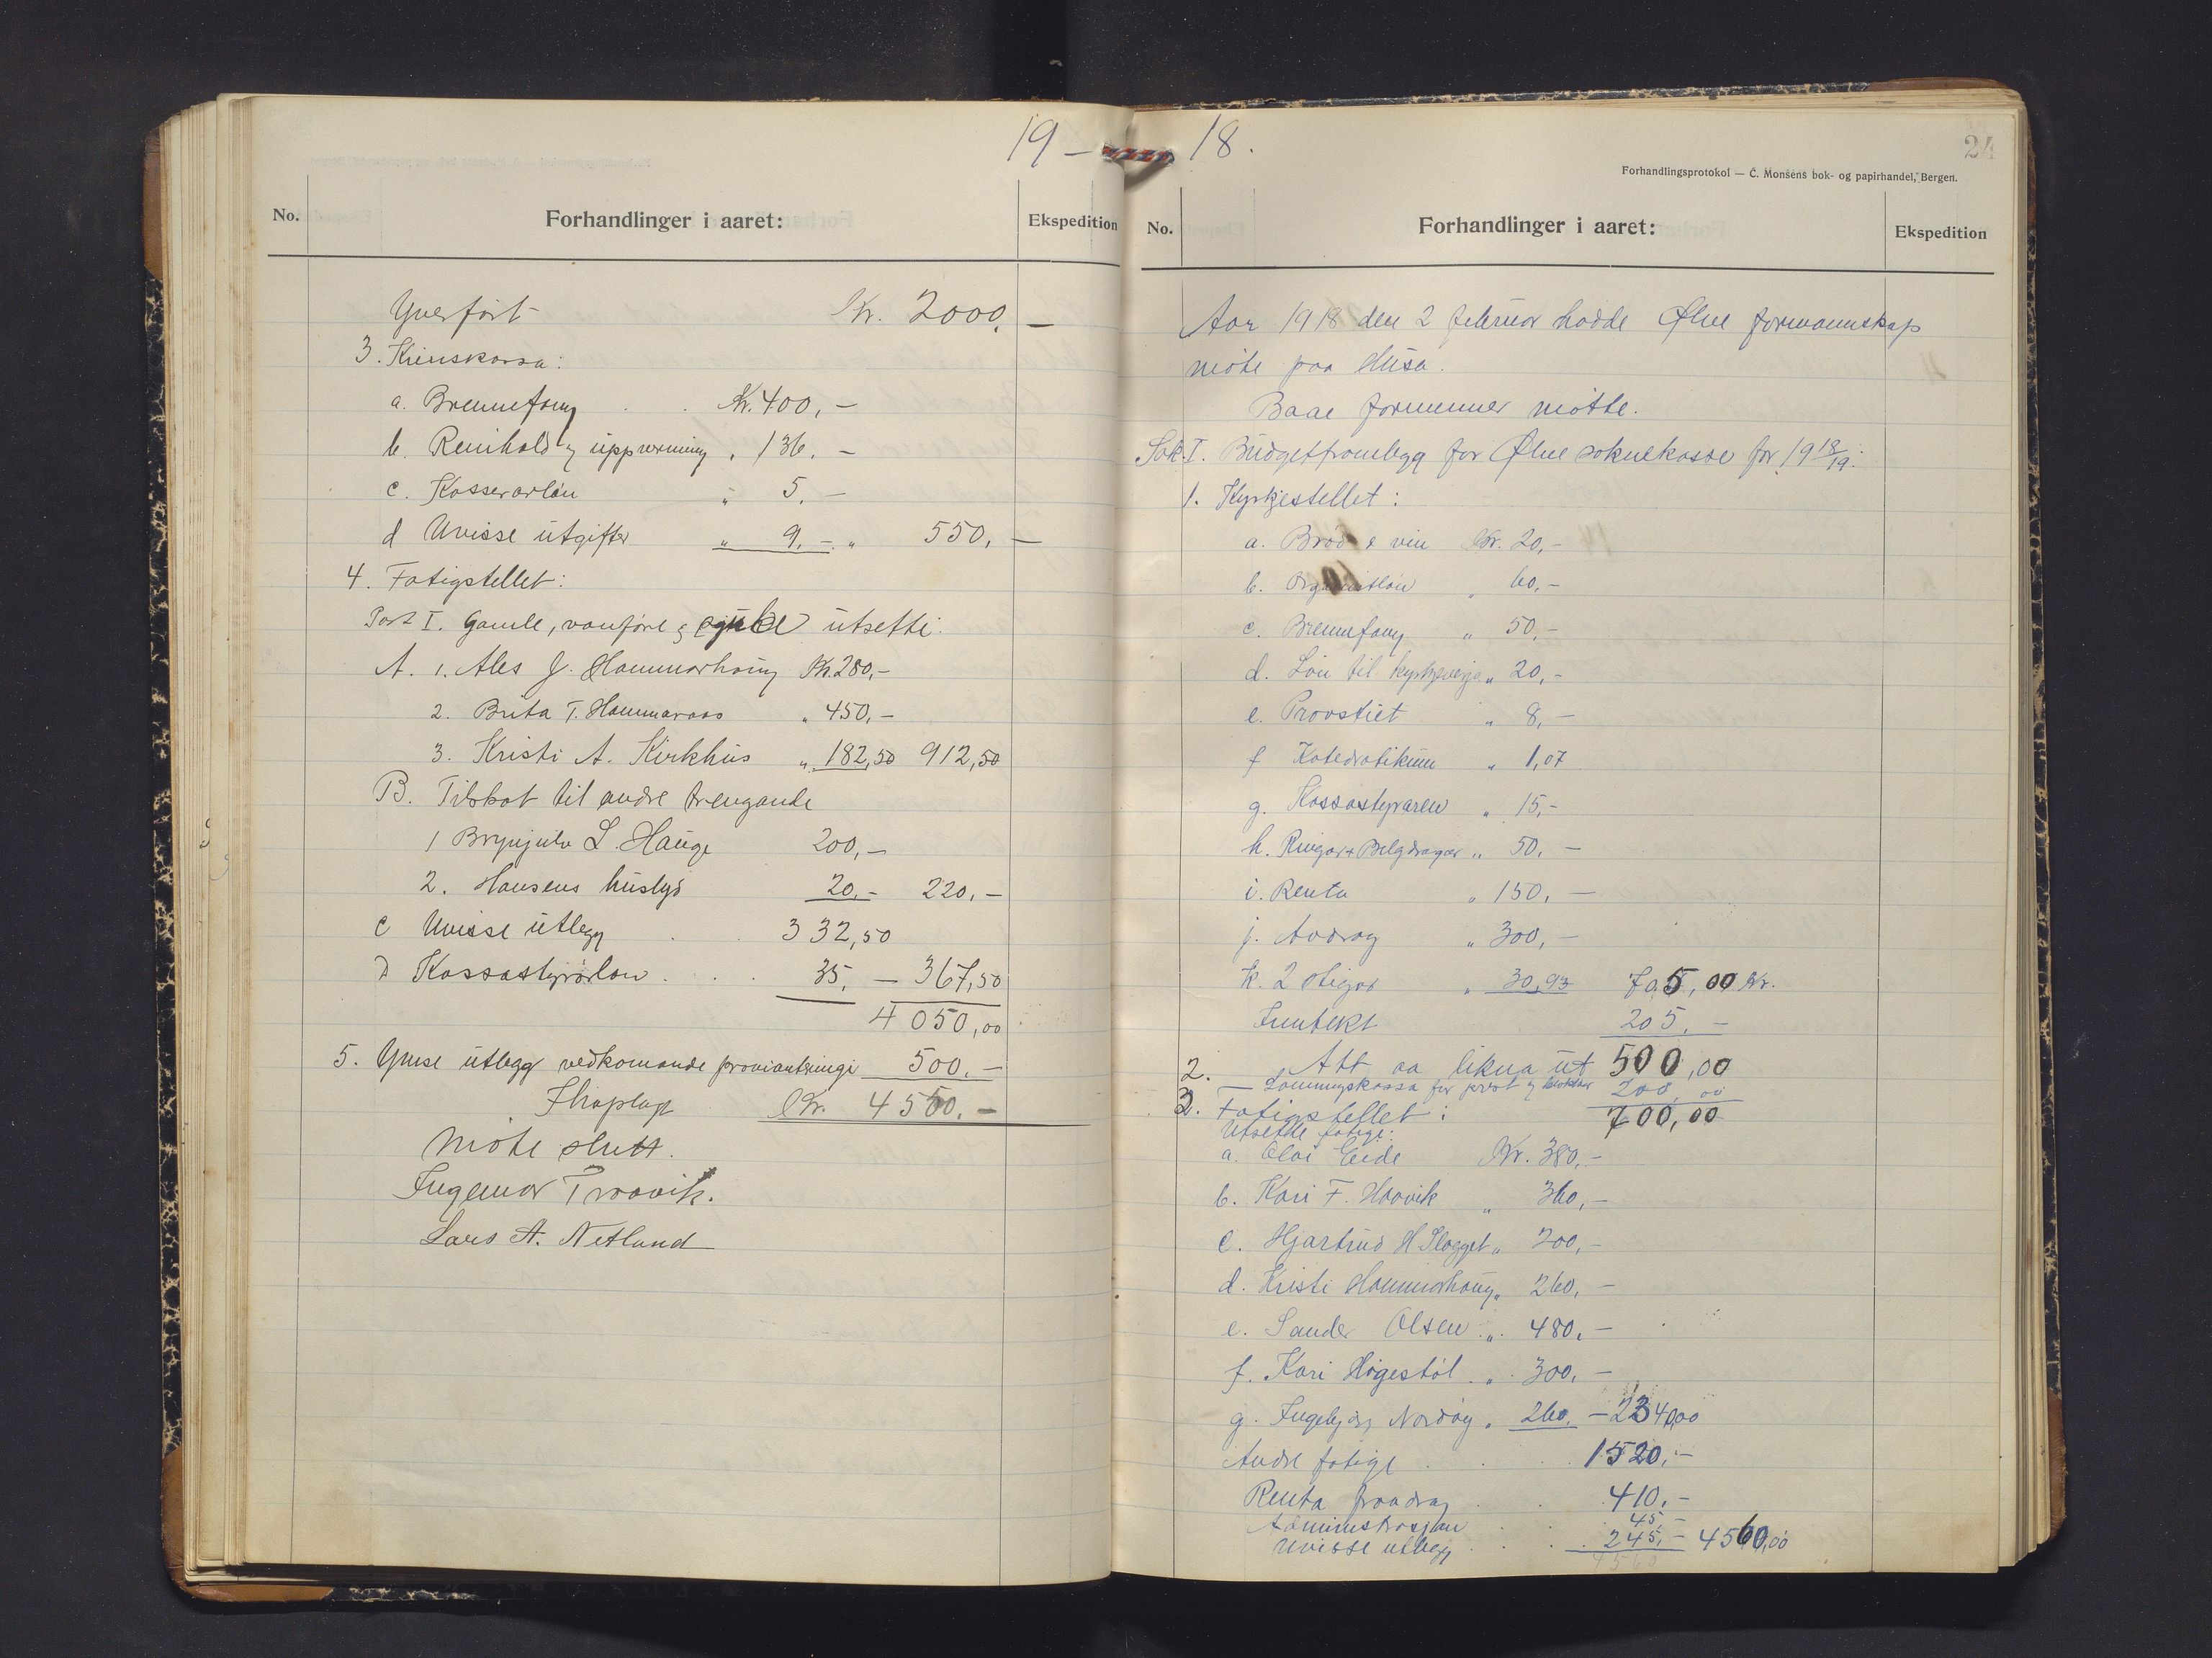 19 – 18.
No.
Forhandlinger i aaret:
Ekspedition
Yverført Kr. 2000, –
3. Krinskassa:
a. Brennefang . . Kr. 400, –
b. Reinhald og uppvarming " 136. –
c. Kasserarløn " 5. –
d Uvisse utgifter " 9. – " 550, –
4. Fatigstellet:
Post I. Gamle, vanføre & sjuke utsette.
A. 1. Ales J. Hammarhaug Kr. 280, –
2. Brita T. Hammaraas " 450, –
3. Kristi A. Kirkhus " 182,50 912,50
B. Tilskot til andre trengande
1 Brynjulv L. Hauge 200, –
2. Hansens huslyd 20. – 220. –
C Uvisse utlegg . . 332,50
D Kassastyrarløn . . . 35. – 367,50
4050,00
5. Ymse utlegg vedkomande provianteringi 500. –
Ihoplagt Kr. 4550. –
Møte slutt.
Ingemar Traavik.
Lars A. Netland
24
Forhandlingsprotokol — C. Monsens bok- og papirhandel, Bergen.
No.
Forhandlinger i aaret:
Ekspedition
Aar 1918 den 2 februar hadde Ølve formannskap
møte paa Husa.
Baae formenner møtte.
Sak I. Budgetframlegg for Ølve soknekasse for 1918/19:
1. Kyrkjestellet:
a. Brød & vin Kr. 20, –
b. Organistløn " 60, –
c. Brennefang " 50, –
d. Løn til kyrkjeverja " 20, –
e. Provstiet " 8, –
f Katedratikum " 1,07
g. Kassastyraren " 15, –
h. Ringar + Belgdragar " 50, –
i. Renta " 150, –
j. Avdrag " 300, –
k. 2 stigar " 30,93 705,00 Kr.
Inntekt 205. –
Att aa likna ut 500,00
2. — Lønningskassa for prest og klokkar 200,00
700,00
3. Fatigstellet:
Utsette fatige:
a. Olai Eide Kr. 380, –
b. Kari F. Haavik " 360, –
c. Hjartrud H Slogget " 200, –
d. Kristi Hammarhaug " 260, –
e. Sander Olsen " 480, –
f. Kari Høgestøl " 300, –
g. Ingebjørg Nordøy " 260, – 2340,00
Andre fatige . . . 1520, –
Renta fraadrag . . 410, –
Administrasjon . . 45, –
Uvisse utlegg . . . 245, – 4560,00